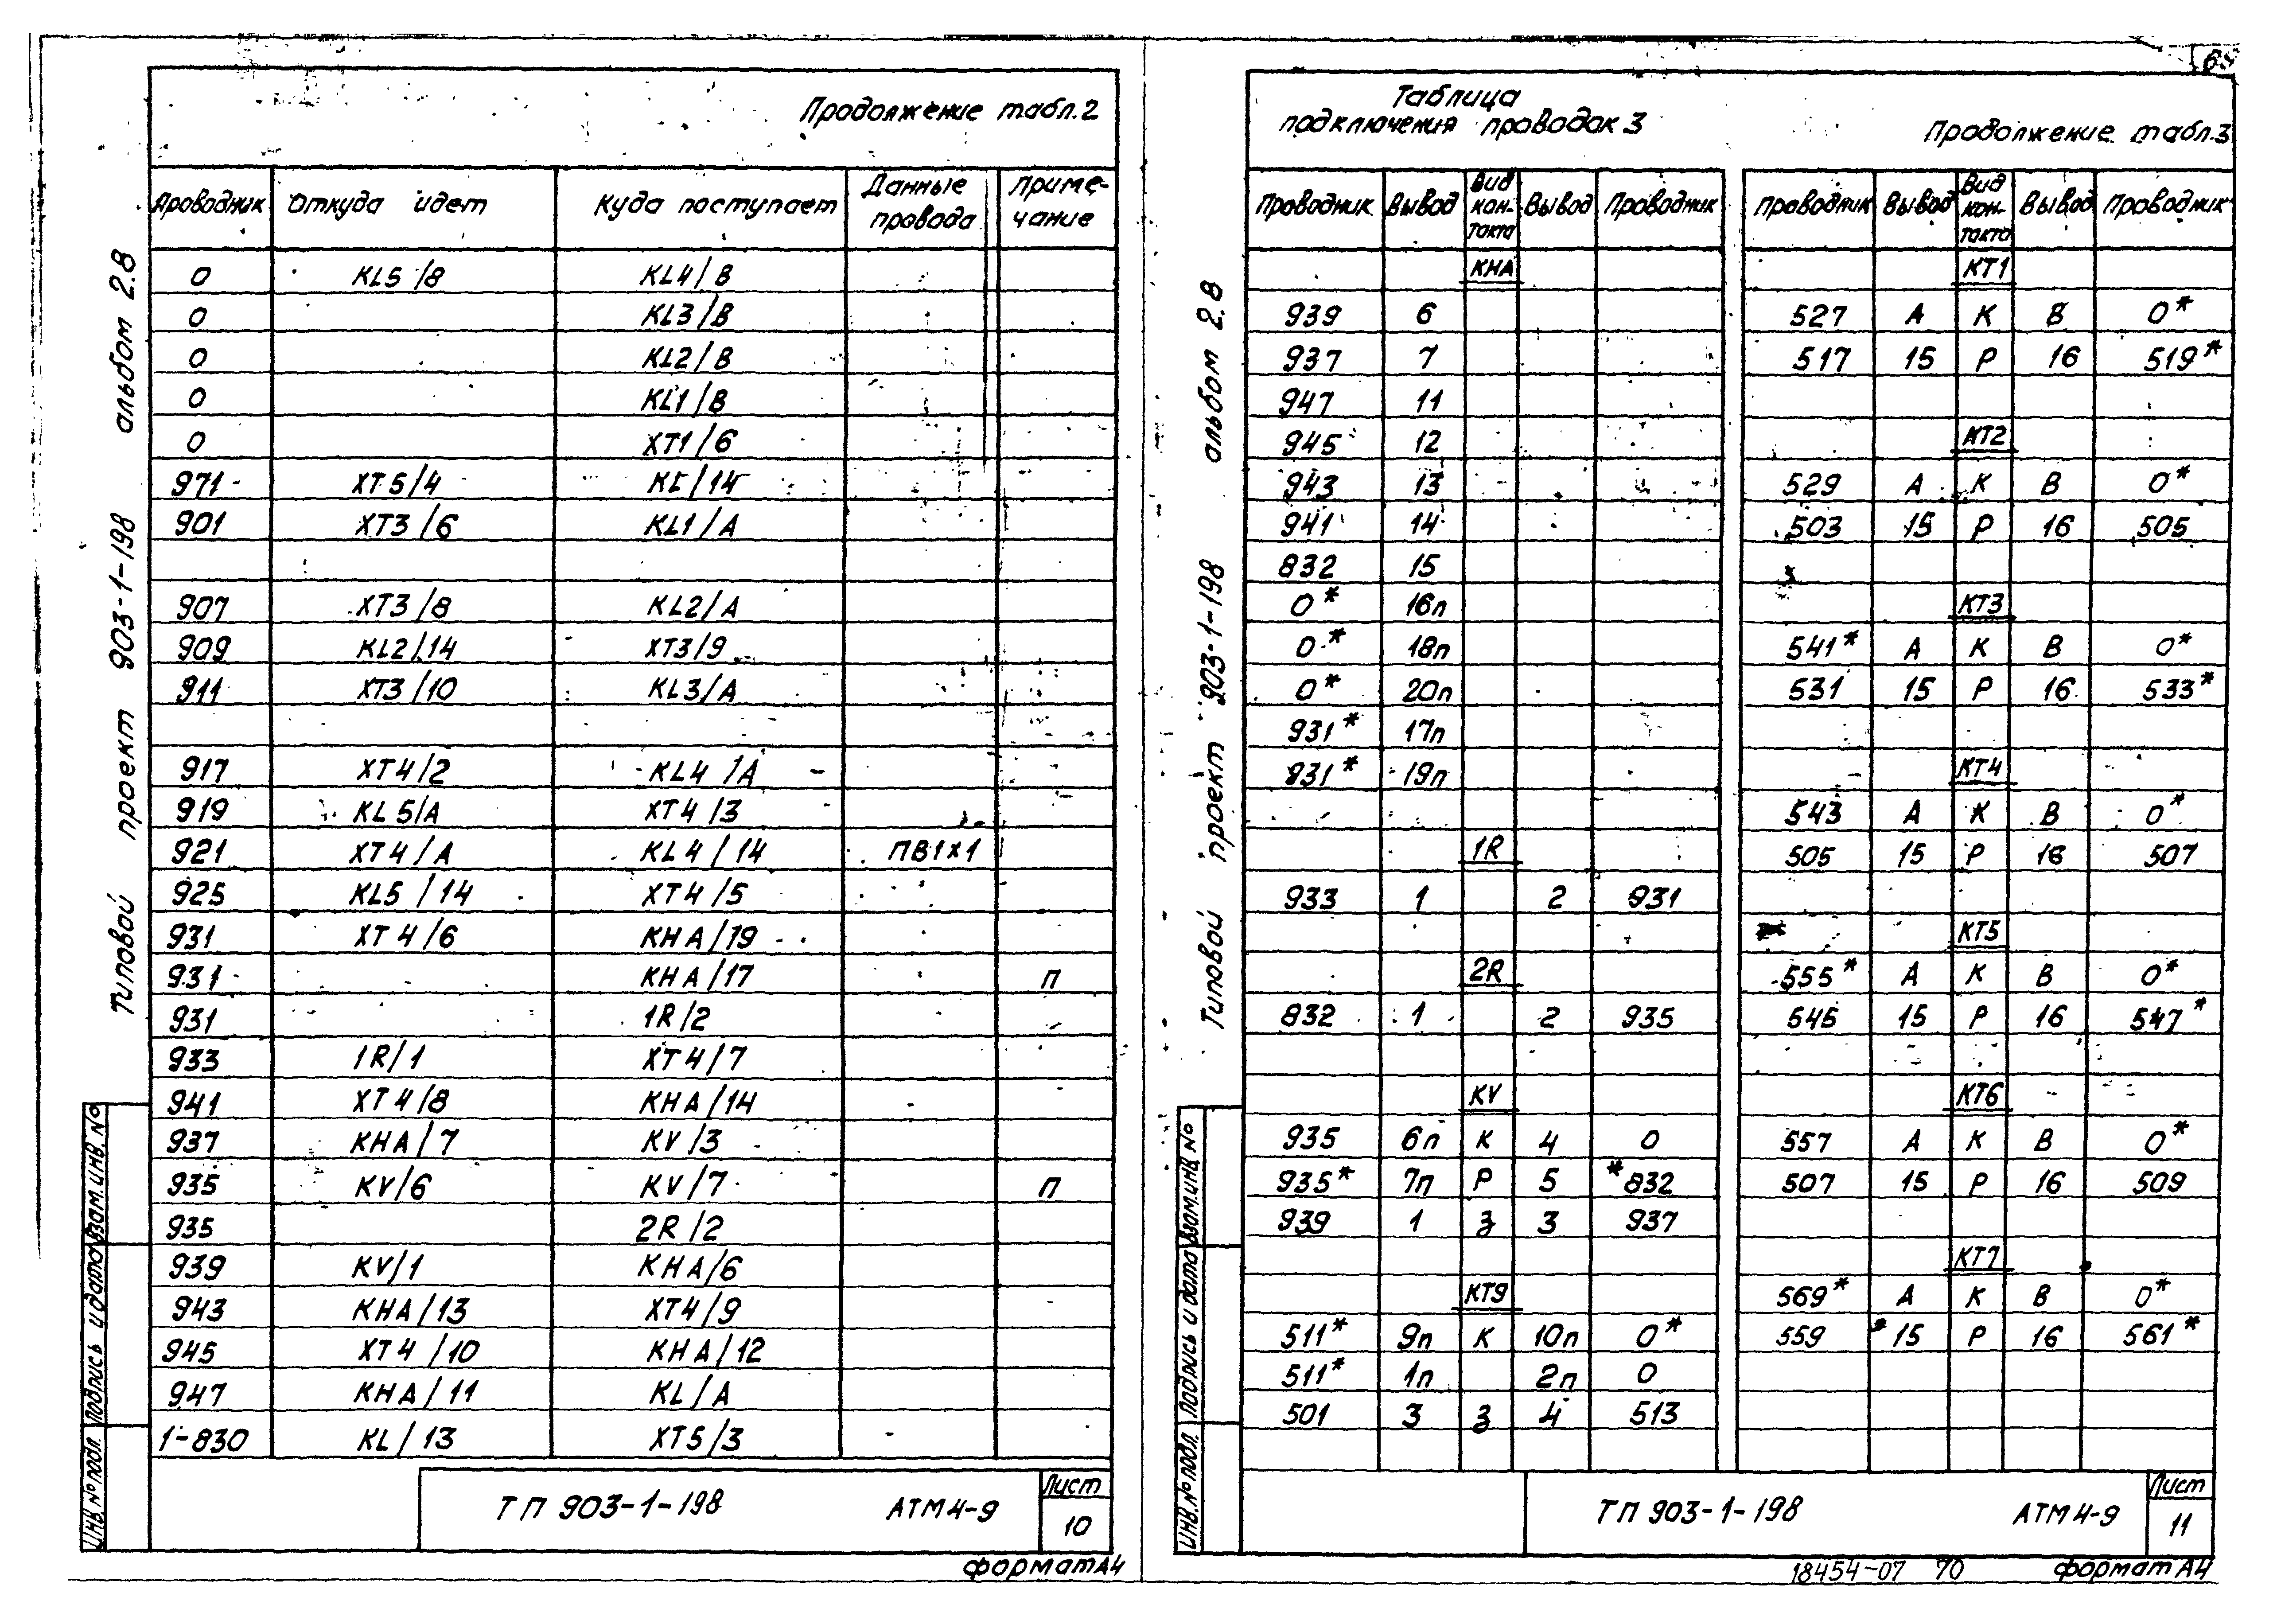 Продолжение табл.2
Проводник Откуда идет Куда поступает Данные провода Примечание
0 KL5/8 KL4/В
0 KL3/В
0 KL2/В
0 KL1/В
0 ХТ1/6
971 ХТ5/4 KL/14
901 ХТ3/6 KL1/А
907 ХТ3/8 KL2/А
909 KL2/14 ХТ3/9
911 ХТ3/10 KL3/А
917 ХТ4/2 KL4/А
919 KL5/А ХТ4/3
921 ХТ4/А KL4/14 ПВ1х1
925 KL5/14 ХТ4/5
931 ХТ4/6 КНА/19
931 КНА/17 п
931 1R/2
933 1R/1 ХТ4/7
941 ХТ4/8 КНА/14
937 КНА/7 KV/3
935 KV/6 KV/7 п
935 2R/2
939 KV/1 КНА/6
943 КНА/13 ХТ4/9
945 ХТ4/10 КНА/12
947 КНА/11 KL/А
1-830 KL/13 ХТ5/3
ТП 903-1-198 АТМ4-9 Лист 10
формат А4
Типовой проект 903-1-198 альбом 2.8
Инв.№ подл. Подпись и дата Взам.инв.№
69
Таблица
подключения проводок 3
Проводник Вывод Вид контакта Вывод Проводник
КНА
939 6
937 7
947 11
945 12
943 13
941 14
832 15
0* 16п
0* 18п
0* 20п
931* 17п
931* 19п
1R
933 1 2 931
2R
832 1 2 935
KV
935 6п К 4 0
935* 7п Р 5 *832
939 1 З 3 937
КТ9
511* 9п К 10п 0*
511* 1п 2п 0
501 3 З 4 513
Продолжение табл.3
Проводник Вывод Вид контакта Вывод Проводник
КТ1
527 А К В 0*
517 15 Р 16 519*
КТ2
529 А К В 0*
503 15 Р 16 505
КТ3
541* А К В 0*
531 15 Р 16 533*
КТ4
543 А К В 0*
505 15 Р 16 507
КТ5
555* А К В 0*
545 15 Р 16 547*
КТ6
557 А К В 0*
507 15 Р 16 509
КТ7
569* А К В 0*
559 15 Р 16 561*
ТП 903-1-198 АТМ4-9 Лист 11
18454-07 70 формат А4
Типовой проект 903-1-198 альбом 2.8
Инв.№ подл. Подпись и дата Взам.инв.№